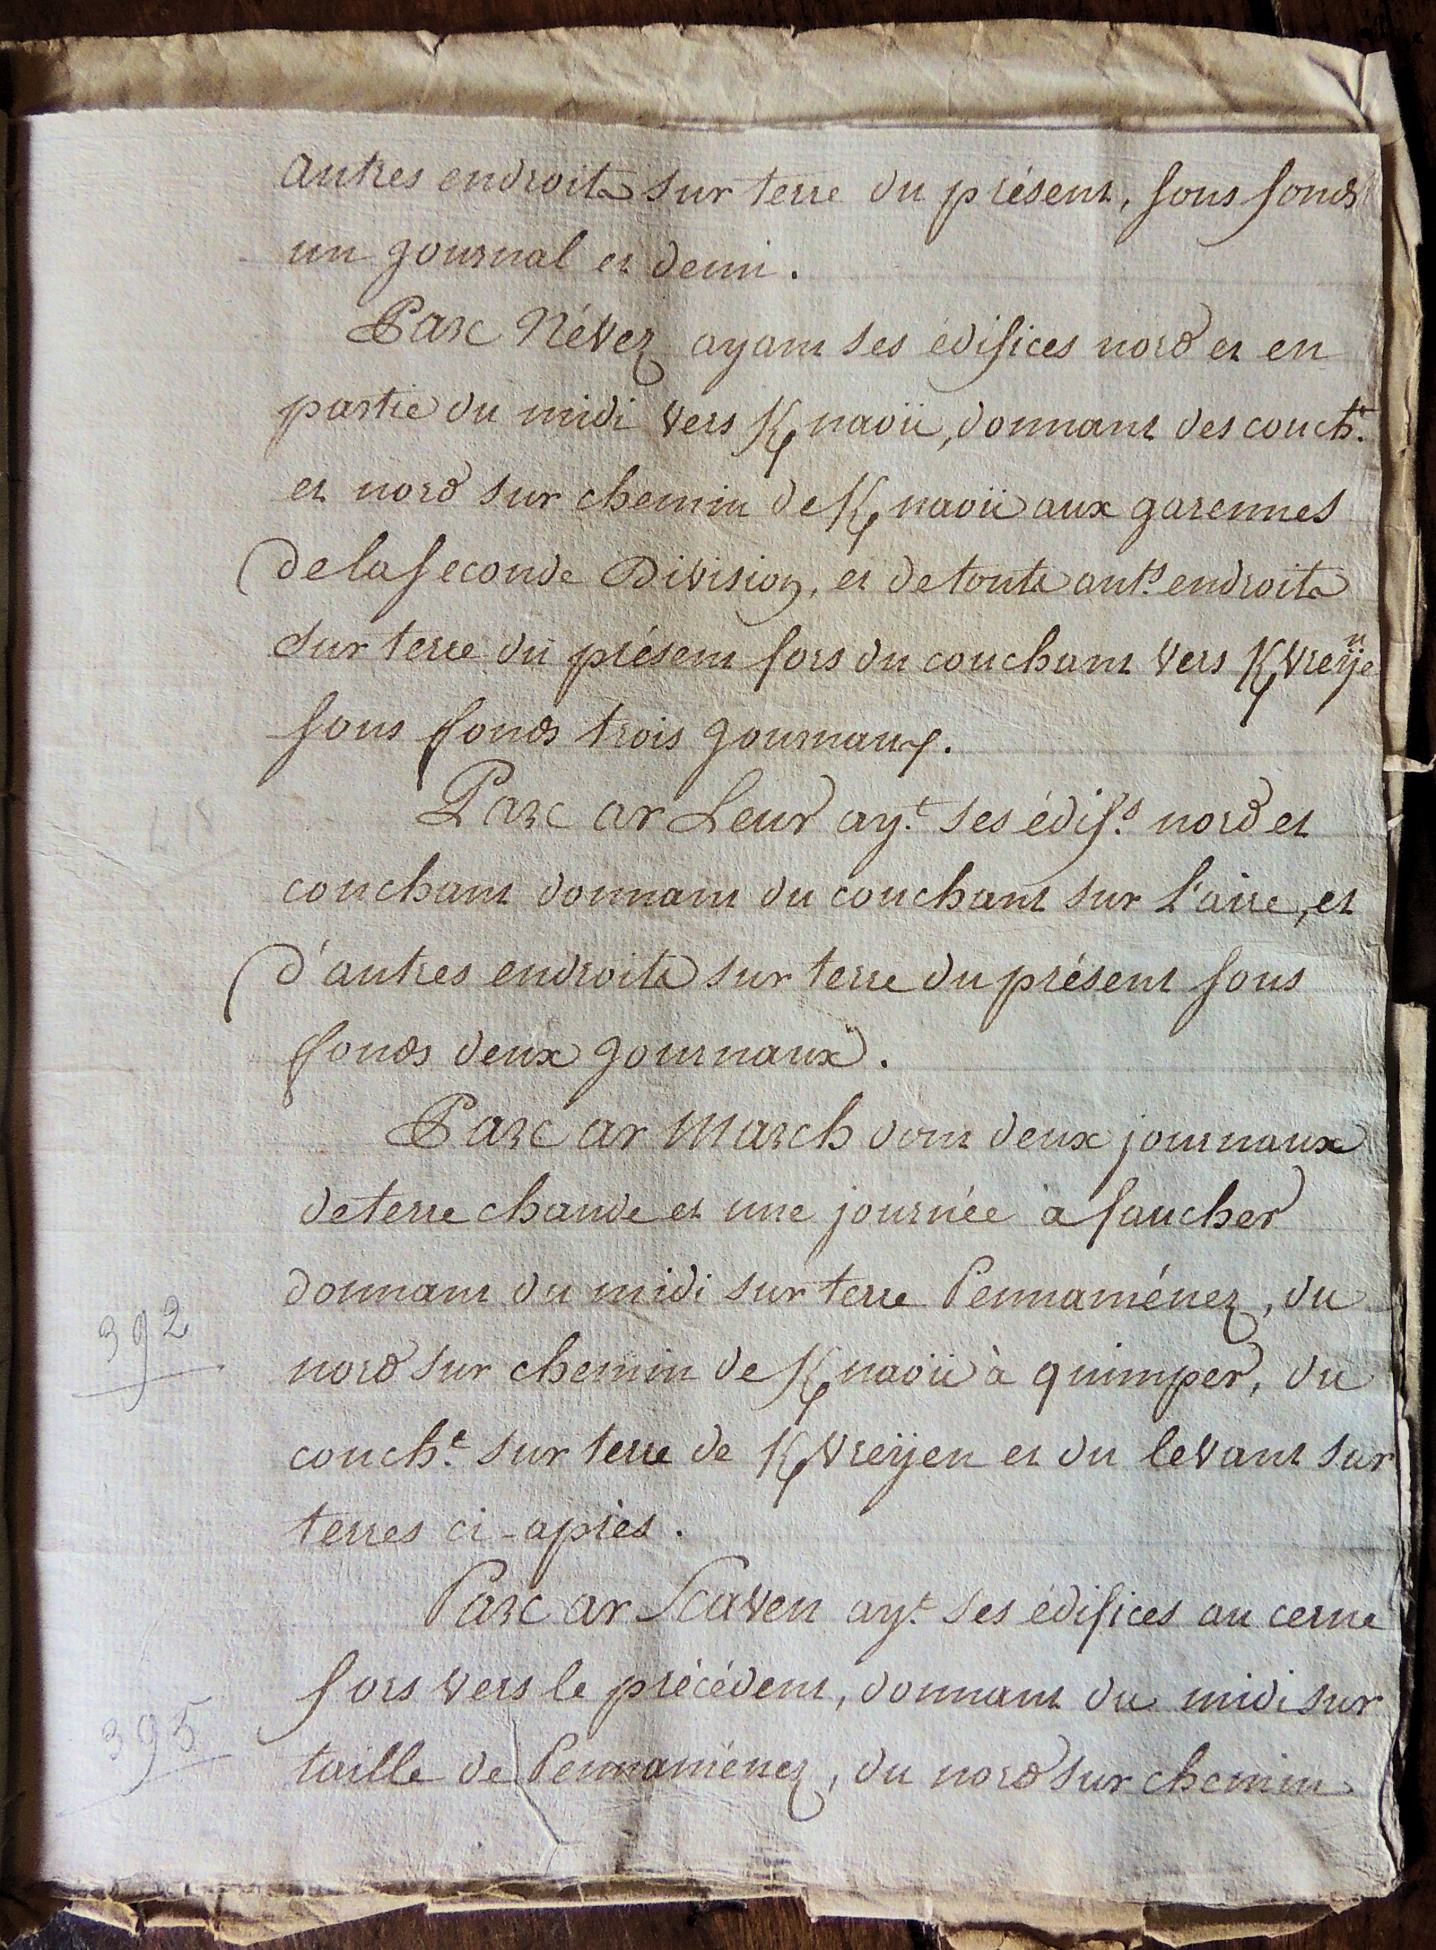 autres endroits sur terre du présent, sous fonds
un journal et demi.
Parc Névez ayant ses édifices nord et en
partie du midi vers Knaoü, donnant des couch.t
et nord sur chemin de Knaoü aux garennes
de la seconde Division, et de touts aut.s endroits
sur terre du présent fors du couchant vers Kvreÿen
sous fonds trois journaux.
Parc ar Leur ay.t ses édif.s nord et
couchant donnant du couchant sur l'aire, et
d'autres endroits sur terre du présent sous
fonds deux journaux.
Parc ar March dont deux journaux
de terre chaude et une journée à faucher
donnant du midi sur terre Pennaménez, du
392
nord sur chemin de Knaoü à quimper, du
couch.t sur terre de Kvreÿen et du levant sur
terres ci-après.
Parc ar Scaven ay.t ses édifices au cerne
fors vers le précédent, donnant du midi sur
395
taille de Pennaménez, du nord sur chemin